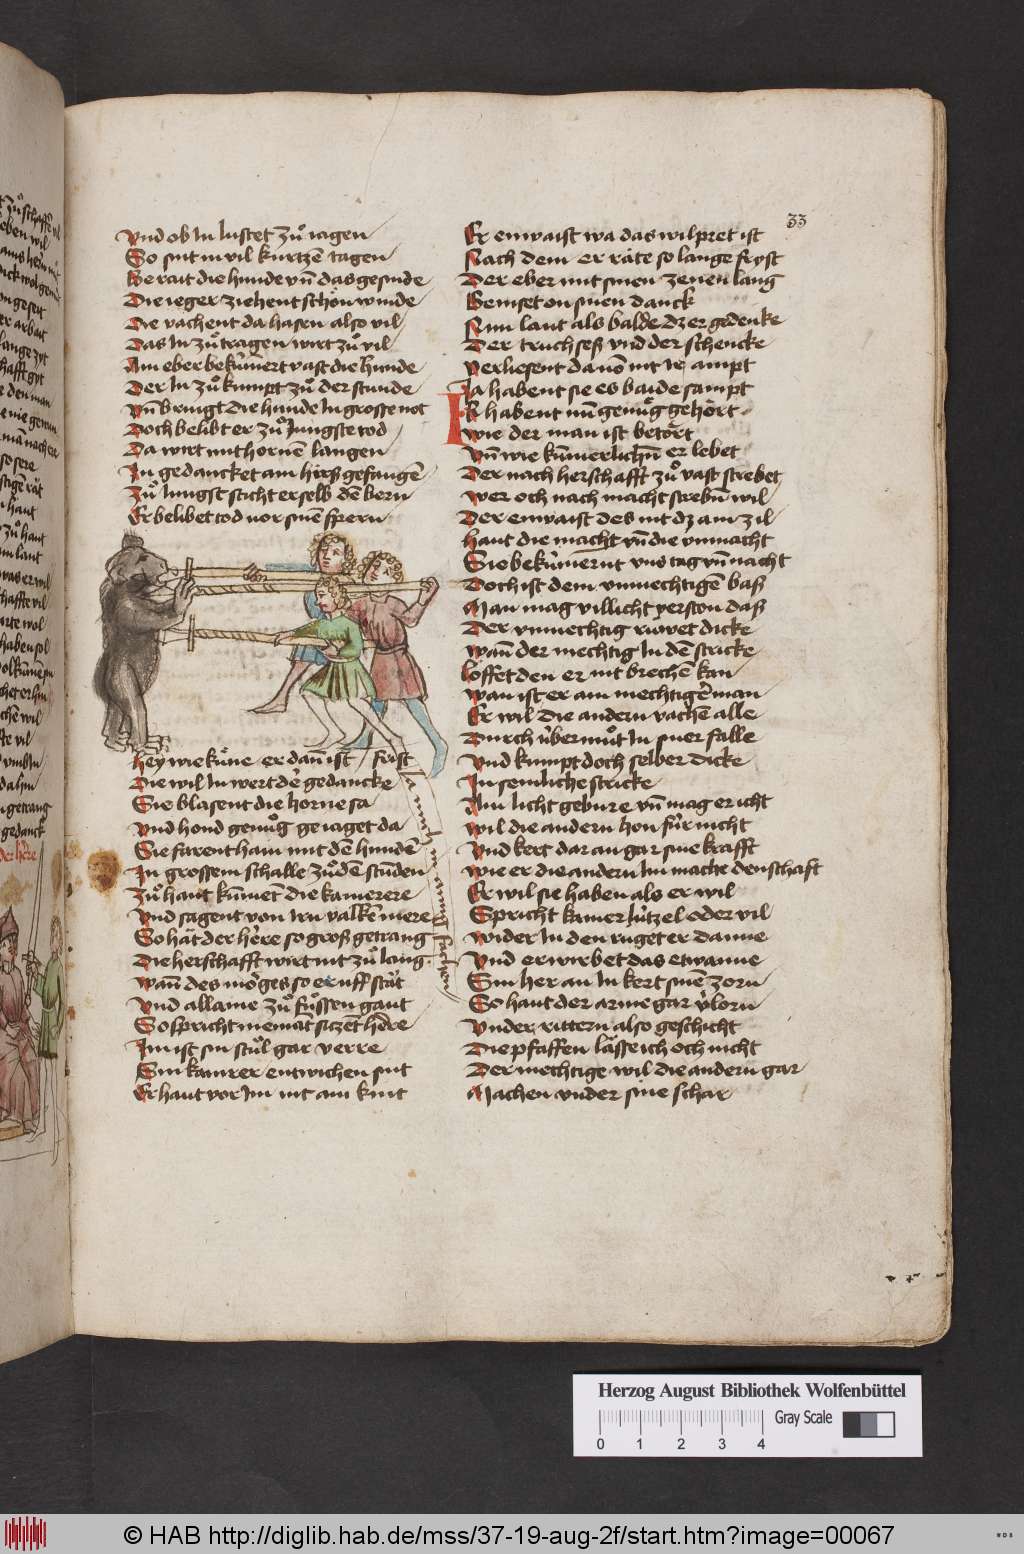 33
Vnd ob In lustet zuͦ iagen
So sint in vil kurtzē tagen
Berait die hunde vn̄ das gesinde
Die ieger ziehent schon winde
Die vachent da hasen also vil
Das In zuͦ tragen wirt zuͦ vil
Ain eber bekūnert vast die hunde
Der In zuͦ kumpt zuͦ der stunde
Vn̄ bringt die hunde In grosse not
Doch belibt er zuͦ Iungste tod
Da wirt mit hornē langen
In gedancket ain hirß gefangē
Zuͦ Iungst sticht er selb dē bern
Er belibet tod vor sinē spern
hey wie kuͤne er dan̄ ist / frist
Die wil In wert der gedancke
Sie blasent die horne sa
Vnd hond genuͦg geiaget da
Sie farent haim mit dē hundē
In grossem schalle zuͦ dē stundē
Zuͦ hant kūmēt die kamerere
Vnd sagent von Iru valkē mere
So hāt der herre so groß getrang
Die herschafft wirt nit zuͦ lang
wan̄ des morges so er uff stāt
Vnd allaine zuͦ fuͤssen gaut
So spricht niemāt siczēt herre
Im ist sin stuͦl gar verre
Sin kamrer entwichen sint
Er haut vor Im nit ain kint
Er enwaist wa das wilpret ist
Nach dem er rāte so lange fryst
Der eber mit sinen zenen lang
Gemset on sinen danck
Nun laut als balde dz er gedenke
Der truchseß vnd der schencke
Verliesent dauō nit ir ampt
Ia habent sie es baide sampt
Ir habent nū genuͦg gehört
wie der man ist betört
Vn̄ wie kūmerlichn̄ er lebet
Der nach herschafft zuͦ vast strebet
wer och nach macht strebn̄ wil
Der enwaist des nit dz am zil
haut die macht vn̄ die vnmacht
Sie bekūmernt vns tag vn̄ nacht
Doch ist dem vnmechtigē baß
Man mag villicht verston daß
Der vnmechtig ruwet dicke
wan̄ der mechtig In dē stricke
loffet den er nit brechē kan
wan ist er ain mechtiger man
Er wil die andern vachē alle
Durch übermuͦt In siner falle
Vnd kumpt doch selber dicke
In semliche stricke
Ain licht gebure vn̄ mag er icht
wil die andern hon für nicht
Vnd kert dar an gar sine krafft
wie er die andern Im mache denschafft
Er wil sie haben als er wil
Spricht kainer lützel oder vil
wider In den ruget er danne
Vnd erwirbet das etwanne
Sin her an In kert sinē zorn
So haut der arme gar v̾lorn
Vnder rittern also geschicht
Die pfaffen lässe ich och nicht
Der mechtige wil die andern gar
Machen vnder sine schar
Herzog August Bibliothek Wolfenbüttel
Gray Scale
0 1 2 3 4
© HAB http://diglib.hab.de/mss/37-19-aug-2f/start.htm?image=00067